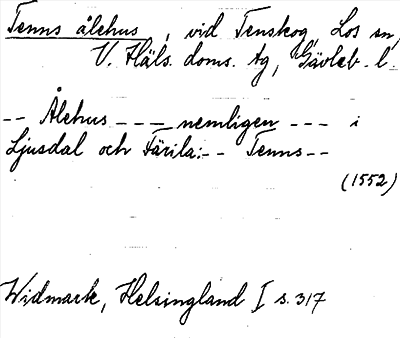 Tenns ålehus, vid Tenskog, Los sn,
V. Häls. doms. tg, Gävleb. l.
-- Ålehus --- nemligen --- i
Ljusdal och Färila: -- Tenns --
(1552)
Widmark, Helsingland I s. 317